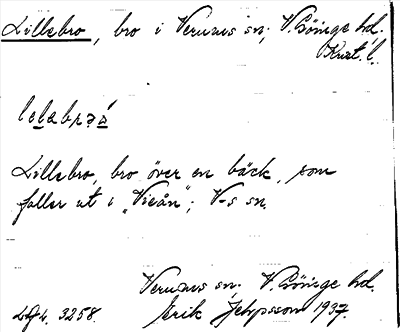 Lillebro, bro i Verums sn; V. Göinge hd.
Krist. l.
lelabrǝa´
Lillebro, bro över en bäck, som
faller ut i "Vieån"; V-s sn.
Verums sn. V. Göinge hd.
LGL. 3258. Erik Jeppsson 1937.